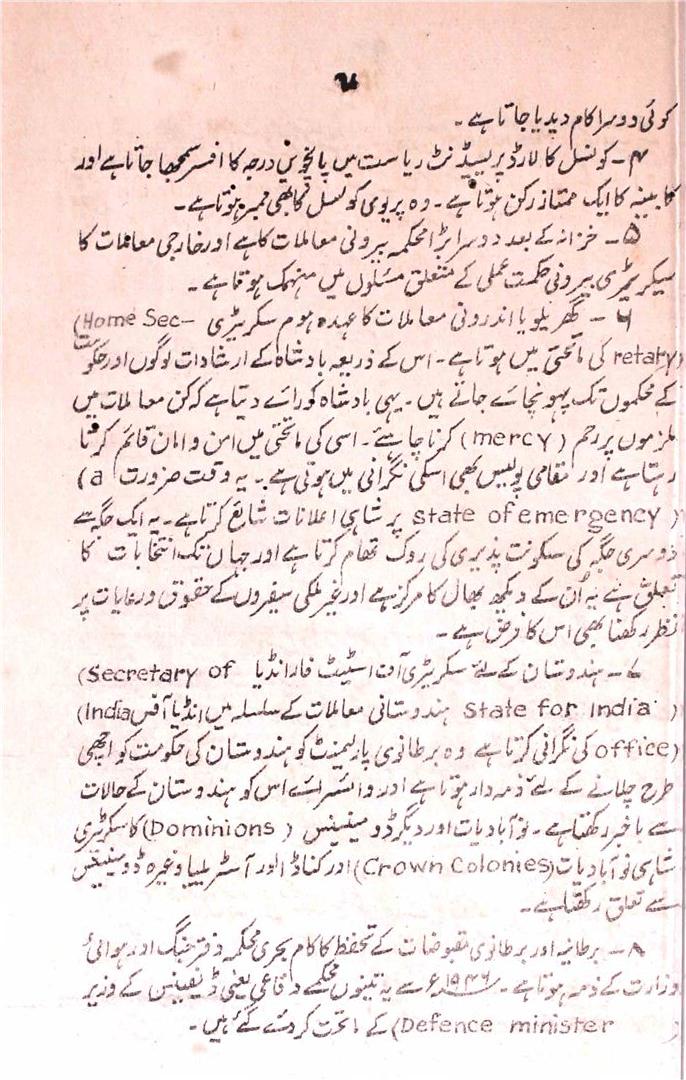 ۷
کوئی دوسرا کام دیدیا جاتا ہے۔
۴۔ کونسل کا لارڈ پریسیڈنٹ ریاست میں پانچویں درجہ کا افسر سمجھا جاتا ہے اور
کابینہ کا ایک ممتاز رکن ہوتا ہے۔ وہ پریوی کونسل کا بھی ممبر ہوتا ہے۔
۵۔ خزانہ کے بعد دوسرا بڑا محکمہ بیرونی معاملات کا ہے اور خارجی معاملات کا
سیکریٹری بیرونی حکمت عملی کے متعلق مسئلوں میں منہمک ہوتا ہے۔
۶۔ گھریلو یا اندرونی معاملات کا عہدہ ہوم سکریٹری (Home Sec-
retary) کی ماتحتی میں ہوتا ہے۔ اس کے ذریعہ بادشاہ کے ارشادات لوگوں اور حکومت
کے محکموں تک پہونچائے جاتے ہیں۔ یہی بادشاہ کو رائے دیتا ہے کہ کن معاملات میں
ملزموں پر رحم (mercy) کرنا چاہئے۔ اسی کی ماتحتی میں امن و امان قائم کرتا
رہتا ہے اور مقامی پولیس بھی اسکی نگرانی میں ہوتی ہے۔ یہ وقت ضرورت (a
state of emergency) پر شاہی اعلانات شایع کرتا ہے۔ یہ ایک جگہ سے
دوسری جگہ کی سکونت پذیری کی روک تھام کرتا ہے اور جہاں تک انتخابات کا
تعلق ہے یہ اُن کے دیکھ بھال کا مرکز ہے اور غیر ملکی سفیروں کے حقوق و رعایات پر
نظر رکھنا بھی اس کا فرض ہے۔
۷۔ ہندوستان کے لئے سکریٹری آف اسٹیٹ فار انڈیا (Secretary of
State for India) ہندوستانی معاملات کے سلسلہ میں انڈیا آفس (India
office) کی نگرانی کرتا ہے وہ برطانوی پارلیمنٹ کو ہندوستان کی حکومت کو اچھی
طرح چلانے کے لئے ذمہ دار ہوتا ہے اور وائسرائے اس کو ہندوستان کے حالات
سے باخبر رکھتا ہے۔ نوآبادیات اور دیگر ڈومینینس (Dominions) کا سکریٹری
شاہی نوآبادیات (Crown Colonies) اور کناڈا اور آسٹریلیا وغیرہ ڈومینینس
سے تعلق رکھتا ہے۔
۸۔ برطانیہ اور برطانوی مقبوضات کے تحفظ کا کام بحری محکمہ دفتر جنگ اور ہوائی
وزارت کے ذمہ ہوتا ہے۔ ۱۹۴۶ء سے یہ تینوں محکمے دفاعی یعنی ڈیفینس کے وزیر
(Defence minister) کے ماتحت کر دئے گئے ہیں۔